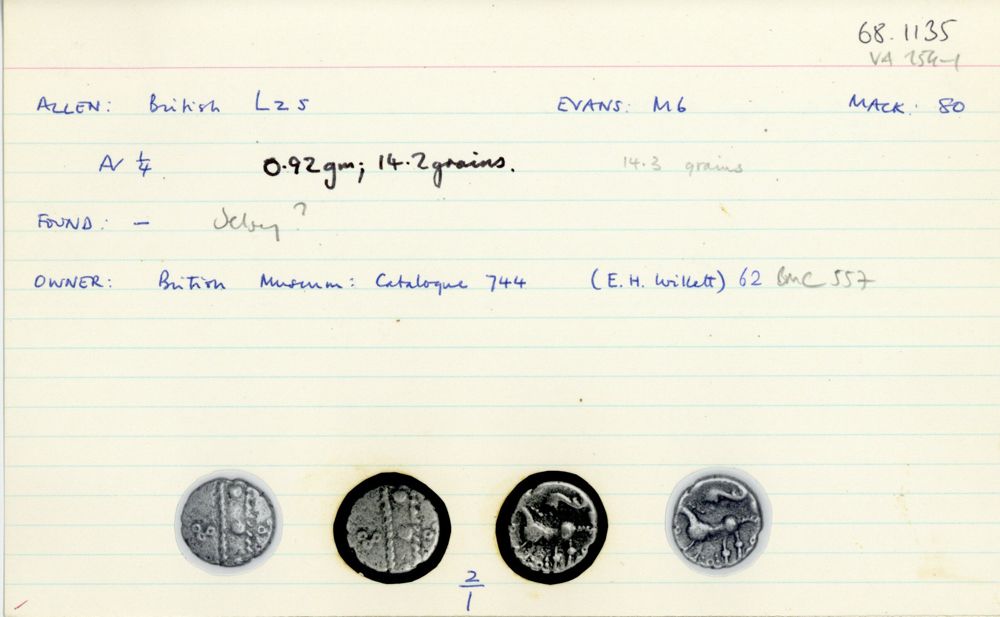 68.1135
VA 254-1
ALLEN: British L25 EVANS: M6 MACK: 80
AV 1/4 0.92gm; 14.2grains. 14.3 grains
FOUND: — Selsey?
OWNER: British Museum: Catalogue 744 (E.H. Willett) 62 BMC 557
2/1